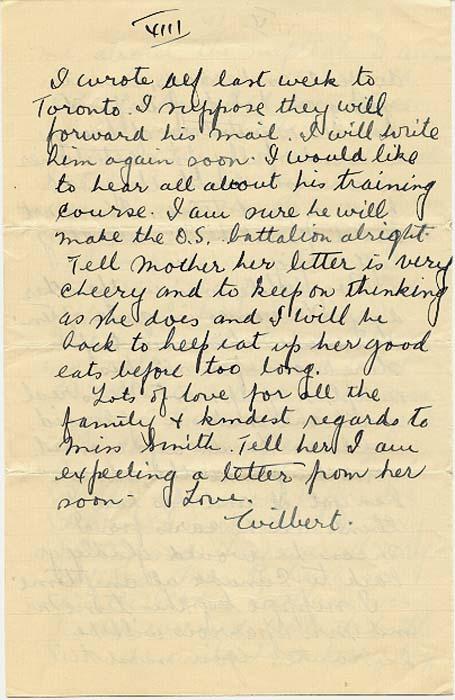 XIII
I wrote Alf last week to
Toronto. I suppose they will
forward his mail. I will write
him again soon. I would like
to hear all about his training
course. I am sure he will
make the O.S. battalion alright.
Tell Mother her letter is very
cheery and to keep on thinking
as she does and I will be
back to help eat up her good
eats before too long.
Lots of love for all the
family & kindest regards to
Miss Smith. Tell her I am
expecting a letter from her
soon - Love.
Wilbert.